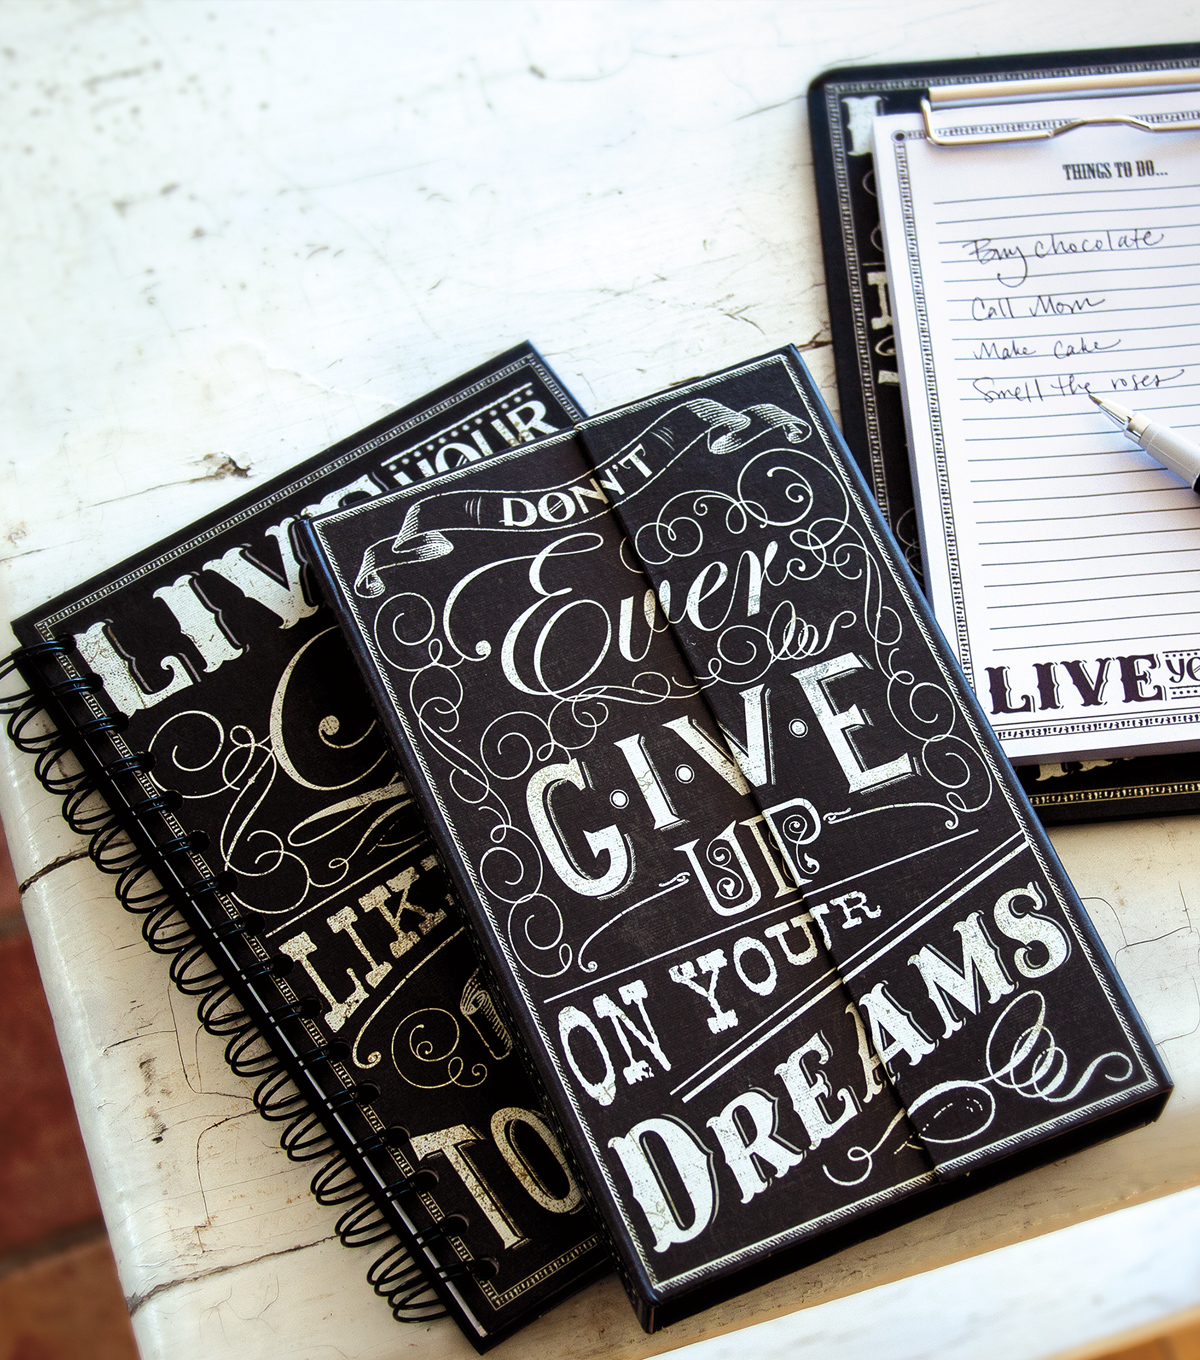 THINGS TO DO...
Buy chocolate
Call Mom
Make Cake
Smell the roses
LIVE
DON'T
Ever
G·I·V·E
UP
ON YOUR
DREAMS
YOUR
TO